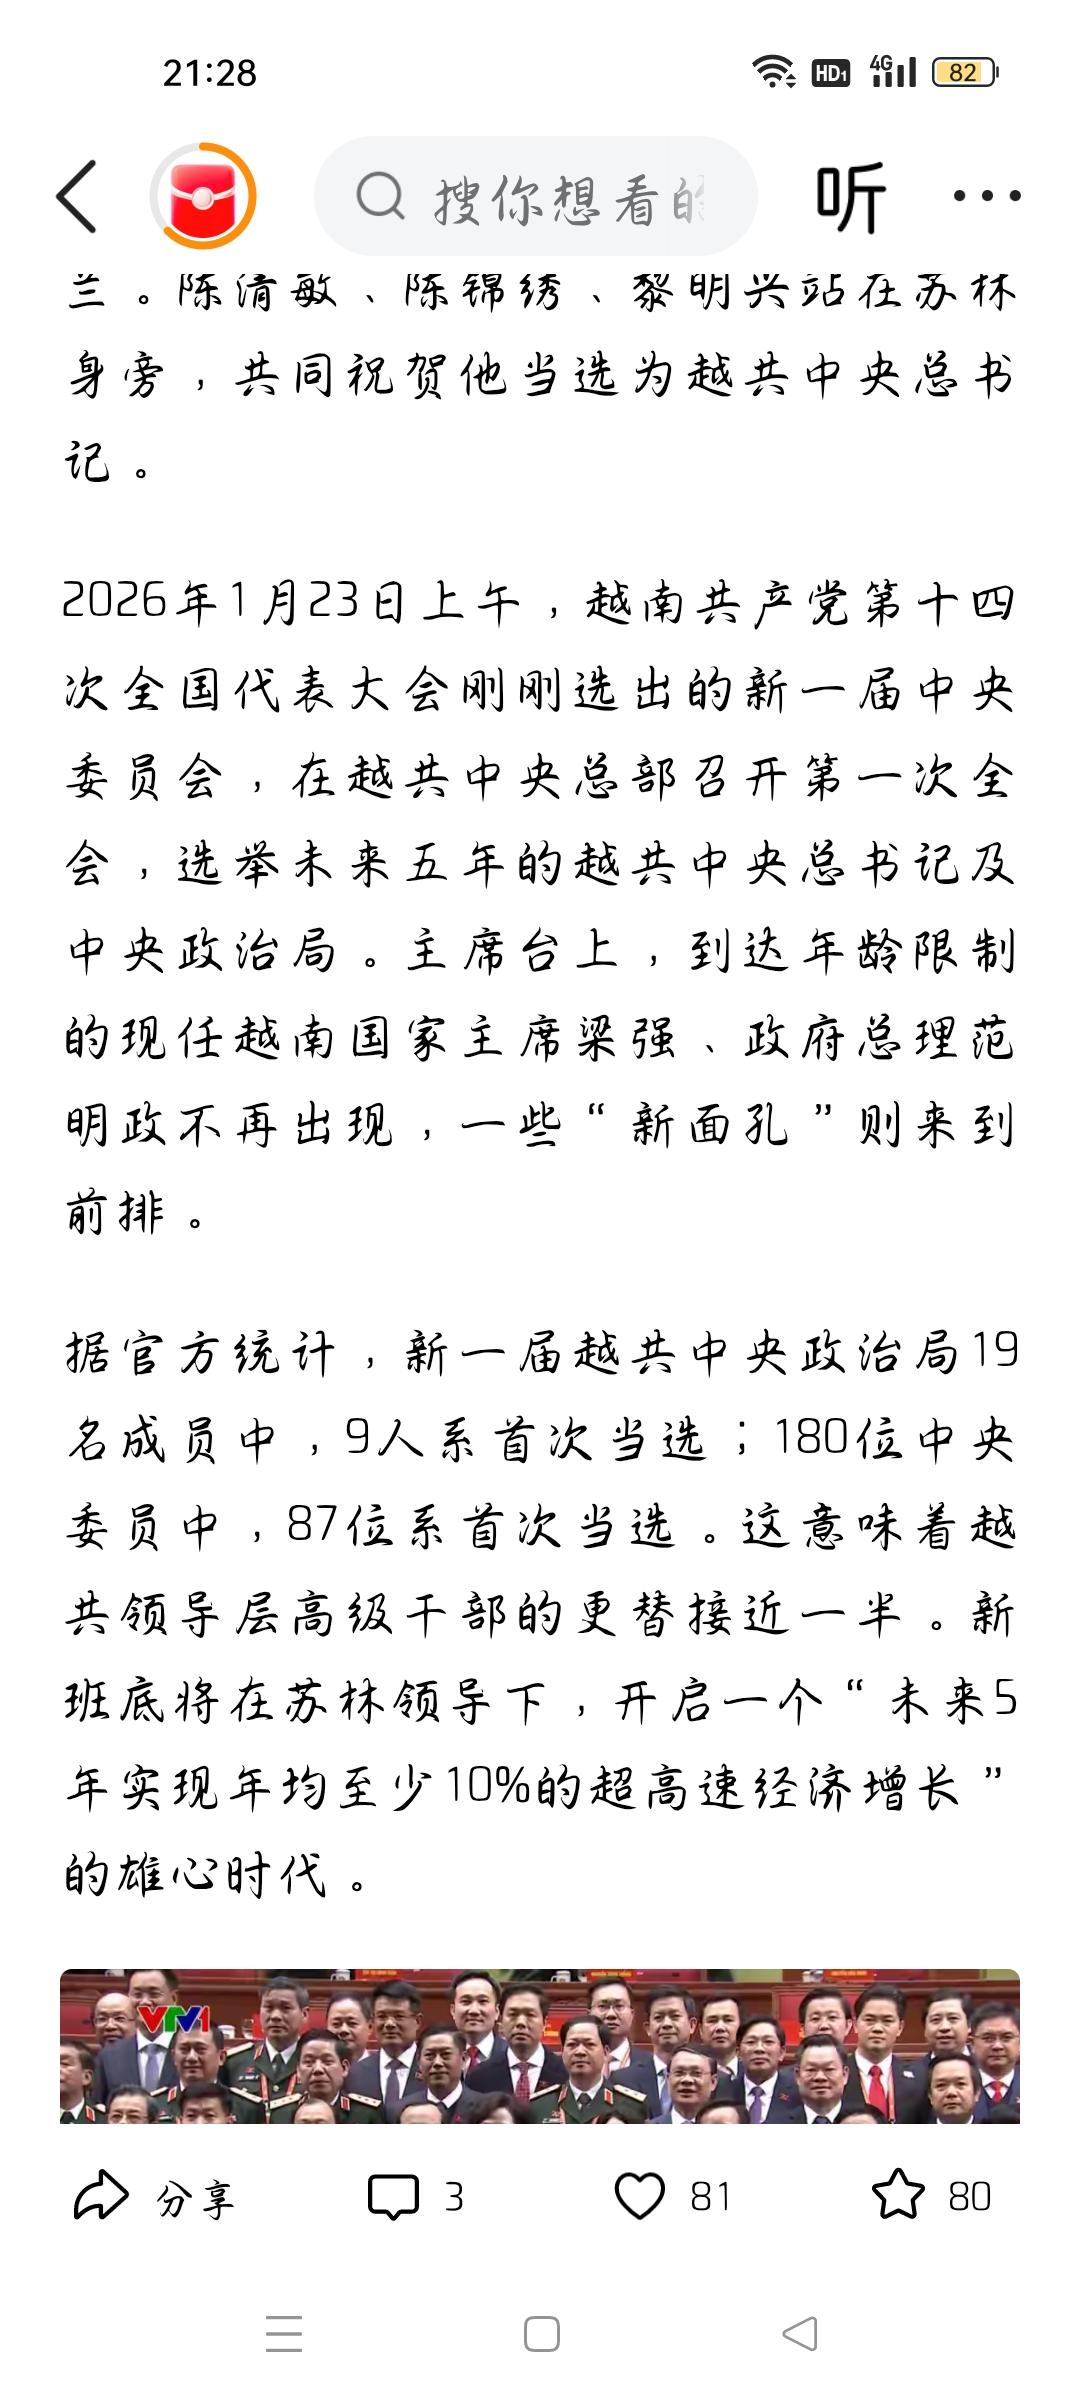 21:28
HD1
4G
82
搜你想看的
听
兰。陈清敏、陈锦绣、黎明兴站在苏林
身旁，共同祝贺他当选为越共中央总书
记。
2026年1月23日上午，越南共产党第十四
次全国代表大会刚刚选出的新一届中央
委员会，在越共中央总部召开第一次全
会，选举未来五年的越共中央总书记及
中央政治局。主席台上，到达年龄限制
的现任越南国家主席梁强、政府总理范
明政不再出现，一些“新面孔”则来到
前排。
据官方统计，新一届越共中央政治局19
名成员中，9人系首次当选；180位中央
委员中，87位系首次当选。这意味着越
共领导层高级干部的更替接近一半。新
班底将在苏林领导下，开启一个“未来5
年实现年均至少10%的超高速经济增长”
的雄心时代。
VTV1
分享
3
81
80